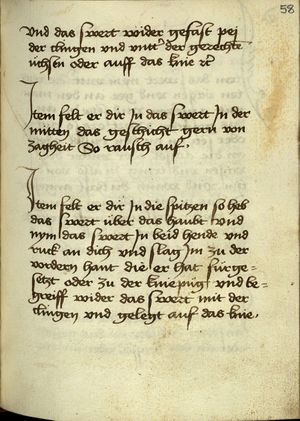 58
vnd das swert wider gefast pei
der clingen vnd vntter der gerechte
vchsen oder auff das knie etc
Item felt er dir In das swert In der
mitten das geschicht gern von
zagheit So rausch auf.
Item felt er dir In die spitzen so heb
das swert über das haubt vnd
nym das swert In beid hende vnd
ruck an dich vnd slag Im zu der
vordern hant die er hat für ge-
setzt oder zu der kniepüg vnd be-
greiff wider das swert mit der
clingen vnd gelegt auf das knie.